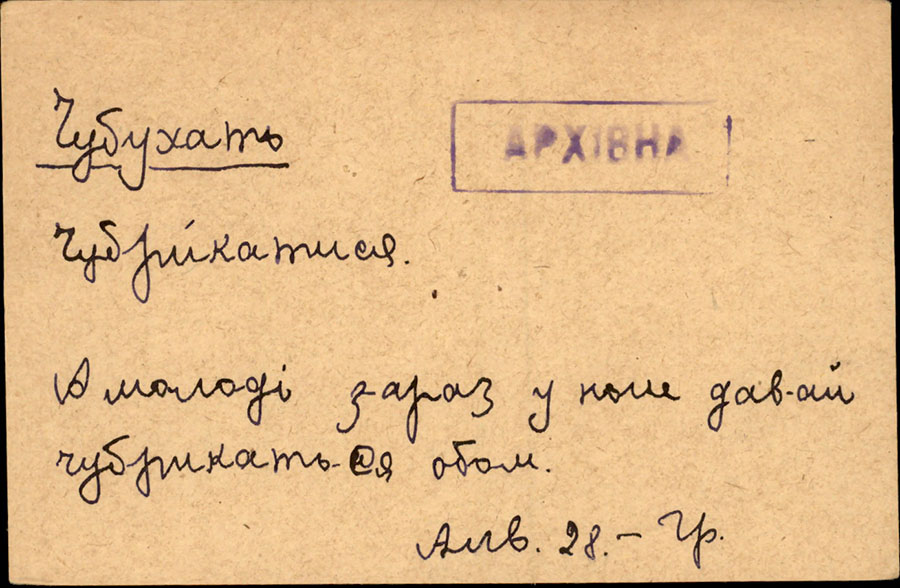 Чубухать
АРХІВНА
Чубри́катися.
А молоді зараз у ноше давай
чубрикаться обом.
Алв. 28. – Гр.